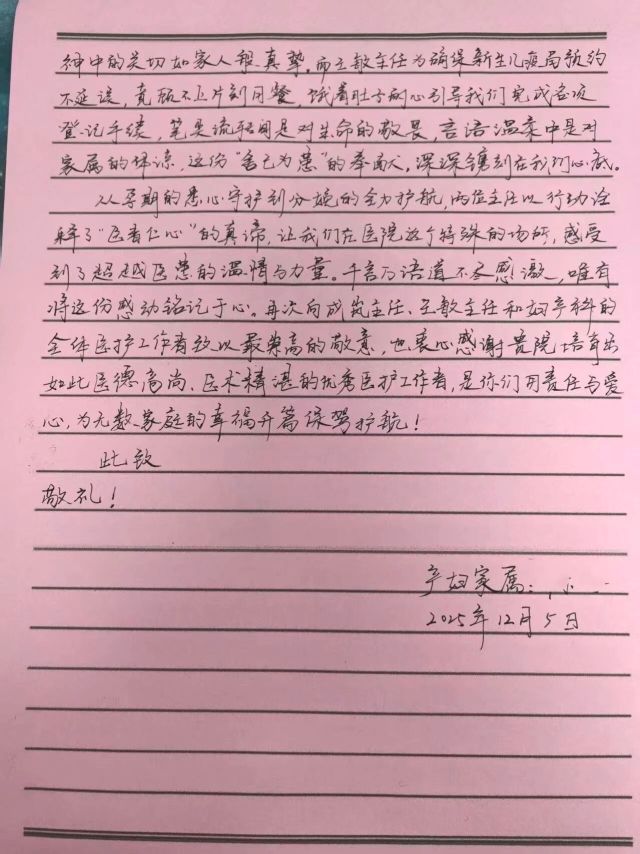 神中的关切如家人般真挚。而王敏主任为确保新生儿疫苗预约
不延误，竟顾不上片刻用餐，饿着肚子耐心引导我们完成各项
登记手续，笔尖流转间是对生命的敬畏，言语温柔中是对
家属的体谅，这份“舍己为患”的奉献，深深镌刻在我们心底。
从孕期的悉心守护到分娩的全力护航，两位主任以行动诠
释了“医者仁心”的真谛，让我们在医院这个特殊的场所，感受
到了超越医患的温情与力量。千言万语道不尽感激，唯有
将这份感动铭记于心。再次向成筑主任、王敏主任和妇产科的
全体医护工作者致以最崇高的敬意，也衷心感谢贵院培育出
如此医德高尚、医术精湛的优秀医护工作者，是你们用责任与爱
心，为无数家庭的幸福开篇保驾护航！
此致
敬礼！
产妇家属：
2025年12月5日